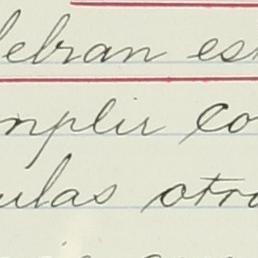 lebran es
mplir co
ulas otra